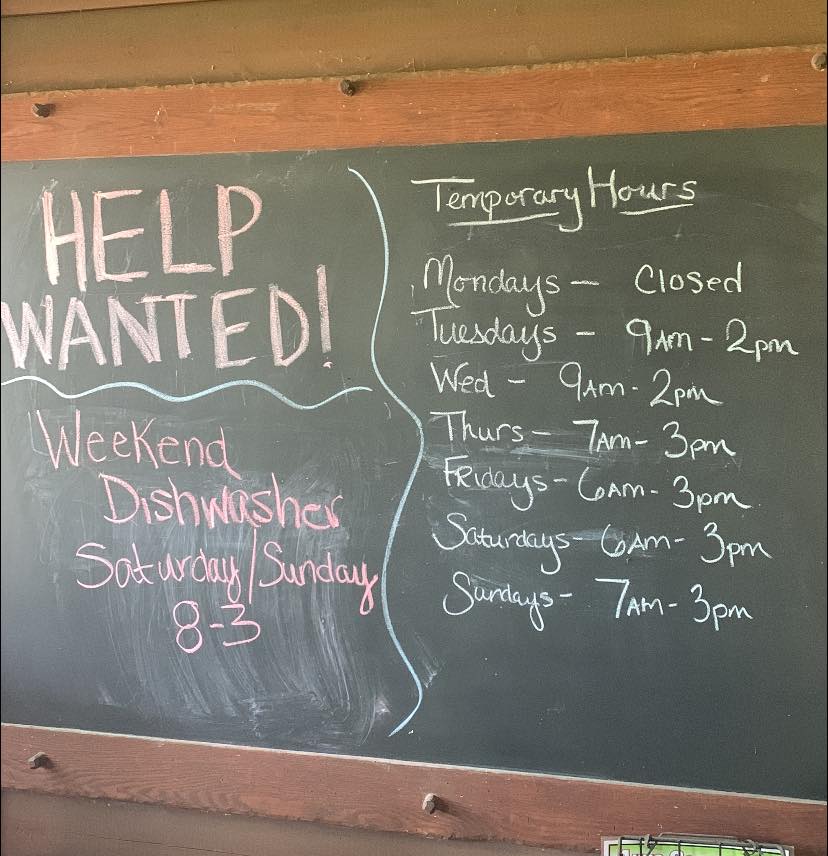 HELP
WANTED!
Weekend
Dishwasher
Saturday/Sunday
8-3
Temporary Hours
Mondays - Closed
Tuesdays - 9AM - 2pm
Wed - 9AM - 2pm
Thurs - 7AM - 3pm
Fridays - 6AM - 3pm
Saturdays - 6AM - 3pm
Sundays - 7AM - 3pm